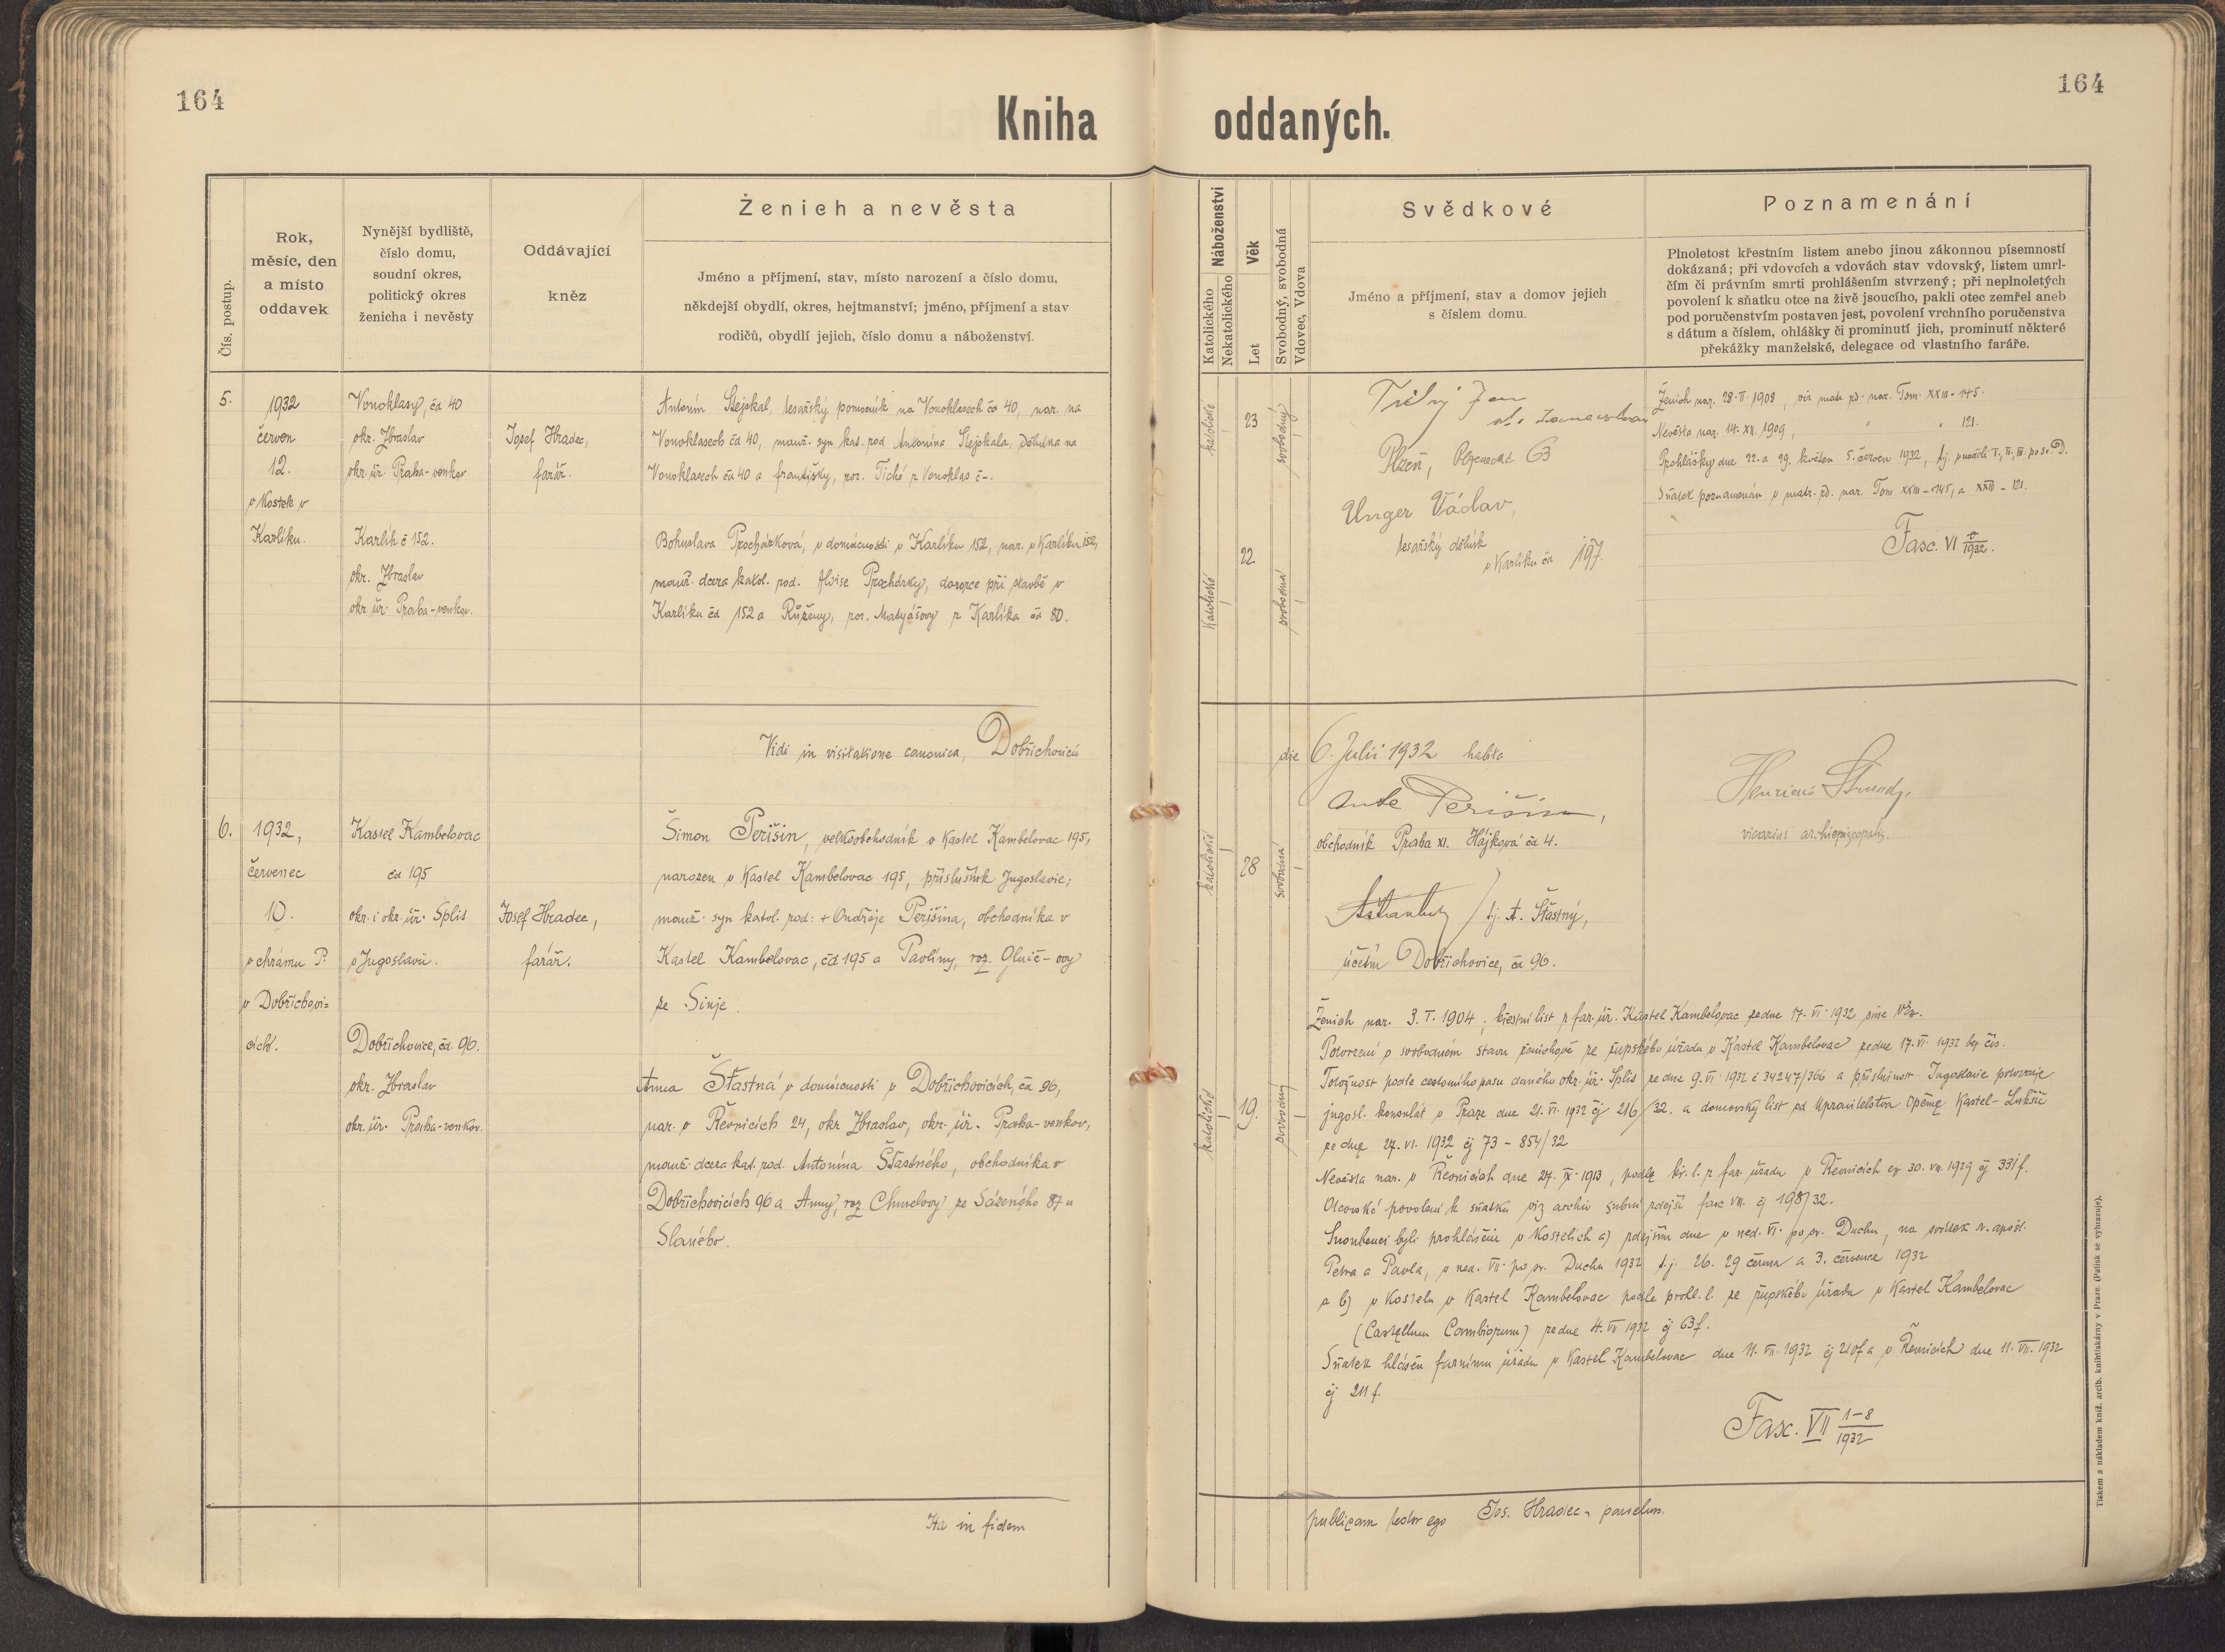 164
164
Kniha oddaných.
Čís. postup.
Rok,
měsíc, den
a místo
oddavek
Nynější bydliště,
číslo domu,
soudní okres,
politický okres
ženicha i nevěsty
Oddávající
kněz
Ženich a nevěsta
Jméno a příjmení, stav, místo narození a číslo domu,
někdejší obydlí, okres, hejtmanství; jméno, příjmení a stav
rodičů, obydlí jejich, číslo domu a náboženství.
Náboženství
Katolického
Nekatolického
Věk
Let
Svobodný, svobodná
Vdovec, Vdova
Svědkové
Jméno a příjmení, stav a domov jejich
s číslem domu.
Poznamenání
Plnoletost křestním listem anebo jinou zákonnou písemností
dokázaná; při vdovcích a vdovách stav vdovský, listem umrl-
čím či právním smrti prohlášením stvrzený; při neplnoletých
povolení k sňatku otce na živě jsoucího, pakli otec zemřel aneb
pod poručenstvím postaven jest, povolení vrchního poručenstva
s dátum a číslem, ohlášky či prominutí jich, prominutí některé
překážky manželské, delegace od vlastního faráře.
5.
1932
červen
12.
v Kostele v
Karlíku.
Vonoklasy, čd 40
okr. Zbraslav
okr. úř. Praha-venkov
Karlík č 152.
okr. Zbraslav
okr. úř. Praha-venkov.
Josef Hradec,
farář.
Antonín Stejskal, tesařský pomocník na Vonoklasech čd 40, nar. na
Vonoklasech čd 40, manž. syn kat. rod. Antonína Stejskala, dělníka na
Vonoklasech čd 40 a Františky, roz. Tiché z Vonoklas č-.
Bohuslava Procházková, v domácnosti v Karlíku 152, nar. v Karlíku 152,
manž. dcera katol. rod. Aloise Procházky, dozorce při stavbě v
Karlíku čd 152 a Růženy, roz. Matyášovy z Karlíka čd 80.
katolické
23
svobodný
katolické
22
svobodná
Plzeň, 63
Unger Václav,
tesařský dělník
v Karlíku čd 197
Ženich nar. 28.II.1908, viz matr. zd. nar. Tom. XXIII-145.
Nevěsta nar. 14. XII. 1909, " " 121.
Prohlášky dne 22. a 29. květen 5. červen 1932, tj. v neděli I., II., III. po sv. D.
Sňatek poznamenán v matr. zd. nar. Tom XXIII-145, a XXIII-121.
Fasc. VI 1932.
Vidi in visitatione canonica, Dobřichovicii
die 6. Julii 1932 habita
vicarius archiepiscopalis.
6.
1932,
červenec
10.
v chrámu P.
v Dobřichovi=
cích.
Kastel Kambelovac
čd 195
okr. i okr. úř. Split
v Jugoslavii.
Dobřichovice, čd. 96.
okr. Zbraslav
okr. úř. Praha-venkov.
Josef Hradec,
farář.
Šimon Perišin, velkoobchodník v Kastel Kambelovac 195,
narozen v Kastel Kambelovac 195, příslušník Jugoslavie,
manž. syn katol. rod. + Ondřeje Perišina, obchodníka v
Kastel Kambelovac, čd 195 a Pavlíny, roz. Glnič-ovy
ze Sinje.
Anna Šťastná v domácnosti v Dobřichovicích, čd 96,
nar. v Řevnicích 24, okr Zbraslav, okr. úř. Praha-venkov,
manž. dcera kat. rod. Antonína Šťastného, obchodníka v
Dobřichovicích 96 a Anny, roz. Chmelovy ze Sázeného 87 u
Slaného.
katolické
28
svobodná
katolické
19.
svobodný
Ante Perišin,
obchodník Praha XI. Hájková čd 4.
tj. A. Šťastný,
účetní Dobřichovice, čd 96.
Ženich nar. 3. I. 1904, křestní list z far. úř. Kastel Kambelovac ze dne 17. VI. 1932 sine Nro.
Potvrzení o svobodném stavu ženichově ze župského úřadu v Kastel Kambelovac ze dne 17. VI. 1932 bez čís.
Totožnost podle cestovního pasu daného okr. úř. Split ze dne 9. VI. 1932 č 34247/366 a příslušnost Jugoslavie potvrzuje
jugosl. konsulát v Praze dne 21. VI. 1932 čj 216/32. a domovský list od Upravitelstva Općine Kastel-Lukšić
ze dne 27. VI. 1932 čj 73-854/32
Nevěsta nar. v Řevnicích dne 27. IX. 1913, podle kř. l. z far. úřadu v Řevnicích ex 30. VII. 1929 čj 331f.
Otcovské povolení k sňatku viz archiv zdejší fasc VII. čj 198/32.
Snoubenci byli prohlášeni v Kostelích a) zdejším dne v ned. VI. po sv. Duchu, na svátek sv. apošt.
Petra a Pavla, v ned. VII. po sv. Duchu 1932 t.j. 26. 29 června a 3. července 1932
a b) v Kostelu v Kastel Kambelovac podle prohl. l. ze župského úřadu v Kastel Kambelovac
(Castellum Cambiorum) ze dne 4. VII 1932 čj 63f.
Sňatek hlášen farnímu úřadu v Kastel Kambelovac dne 11. VII. 1932 čj 210f a v Řevnicích dne 11. VII. 1932
čj 211f.
Fasc. VII 1-8/1932
Ita in fidem
publicam testor ego Jos. Hradec, parochus.
Tiskem a nákladem kníž. arcib. knihtiskárny v Praze. (Patisk se vyhrazuje).